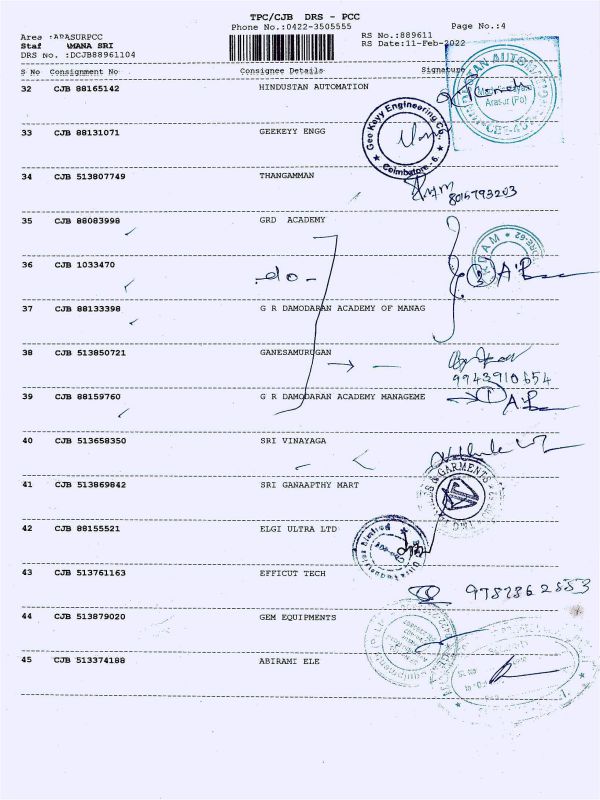 TPC/CJB DRS - PCC
Phone No.:0422-3505555 Page No.:4
Area :ARASURPCC RS No.:889611
Staf MANA SRI RS Date:11-Feb-2022
DRS No. :DCJB88961104
S No Consignment No Consignee Details Signature
32 CJB 88165142 HINDUSTAN AUTOMATION
Arasur (Po)
33 CJB 88131071 GEEKEYY ENGG
Gee Keyy Engineering Co.,
Coimbatore - 6
34 CJB 513807749 THANGAMMAN
8015793203
35 CJB 88083998 GRD ACADEMY
36 CJB 1033470 -do-
37 CJB 88133398 G R DAMODARAN ACADEMY OF MANAG
38 CJB 513850721 GANESAMURUGAN
9943910654
39 CJB 88159760 G R DAMODARAN ACADEMY MANAGEME
40 CJB 513658350 SRI VINAYAGA
41 CJB 513869842 SRI GANAAPTHY MART
& GARMENTS
42 CJB 88155521 ELGI ULTRA LTD
43 CJB 513761163 EFFICUT TECH
44 CJB 513879020 GEM EQUIPMENTS
45 CJB 513374188 ABIRAMI ELE